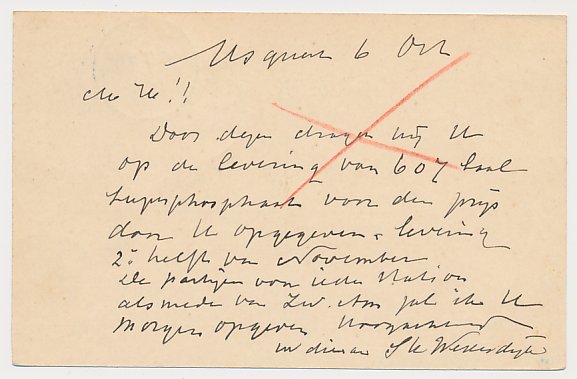 Usquert 6 Oct
M H!!
Door dezen dragen wij U
op de levering van 607 baal
superphosphaat voor den prijs
door U opgegeven. levering
2e helft van November
De partijen voor ieder Station
alsmede van Zw. Am zal ik U
morgen opgeven Hoogachtend
uw dienaar